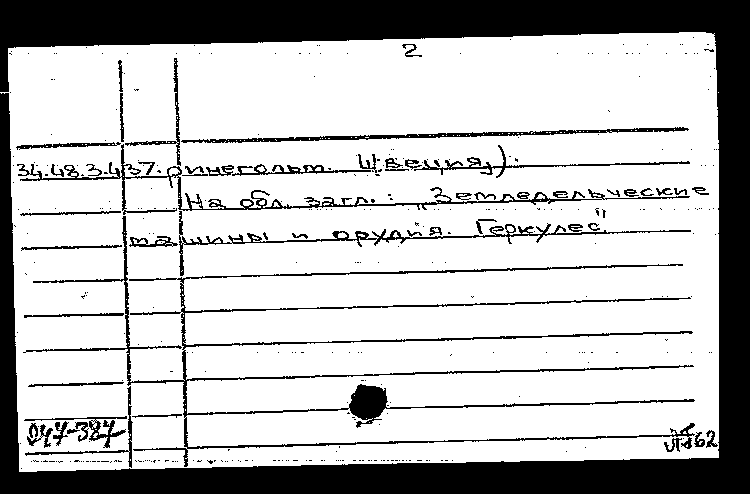 2
34.48.3.437. рингегольт. Швеция).
На обл. загл.: „Земледельческие
машины и орудия. Геркулес"